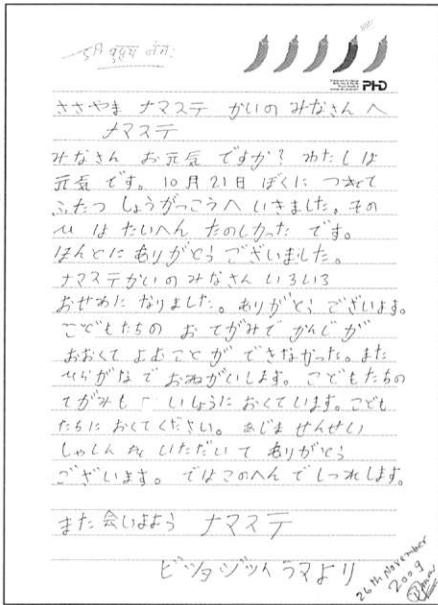 PHD
ささやま ナマステ かいの みなさん へ
ナマステ
みなさん お元気 ですか? わたしは
元気 です。10月21日 ぼくに つきて
ふたつ しょうがっこうへ いきました。その
ひ は たいへん たのしかった です。
ほんとに ありがとう ございました。
ナマステかいの みなさん いろいろ
おせわに なりました。ありがとう ございます。
こどもたちの お てがみで かんじが
おおくて よむこと が できなかった。また
ひらがなで おねがいします。こどもたちの
てがみも いしょうに おくています。こども
たちに おくてください。あじま せんせい
しゃしん を いただいて ありがとう
ございます。ではこのへん でしつれします。
また会いましょう ナマステ
ラマより
26th November
2009